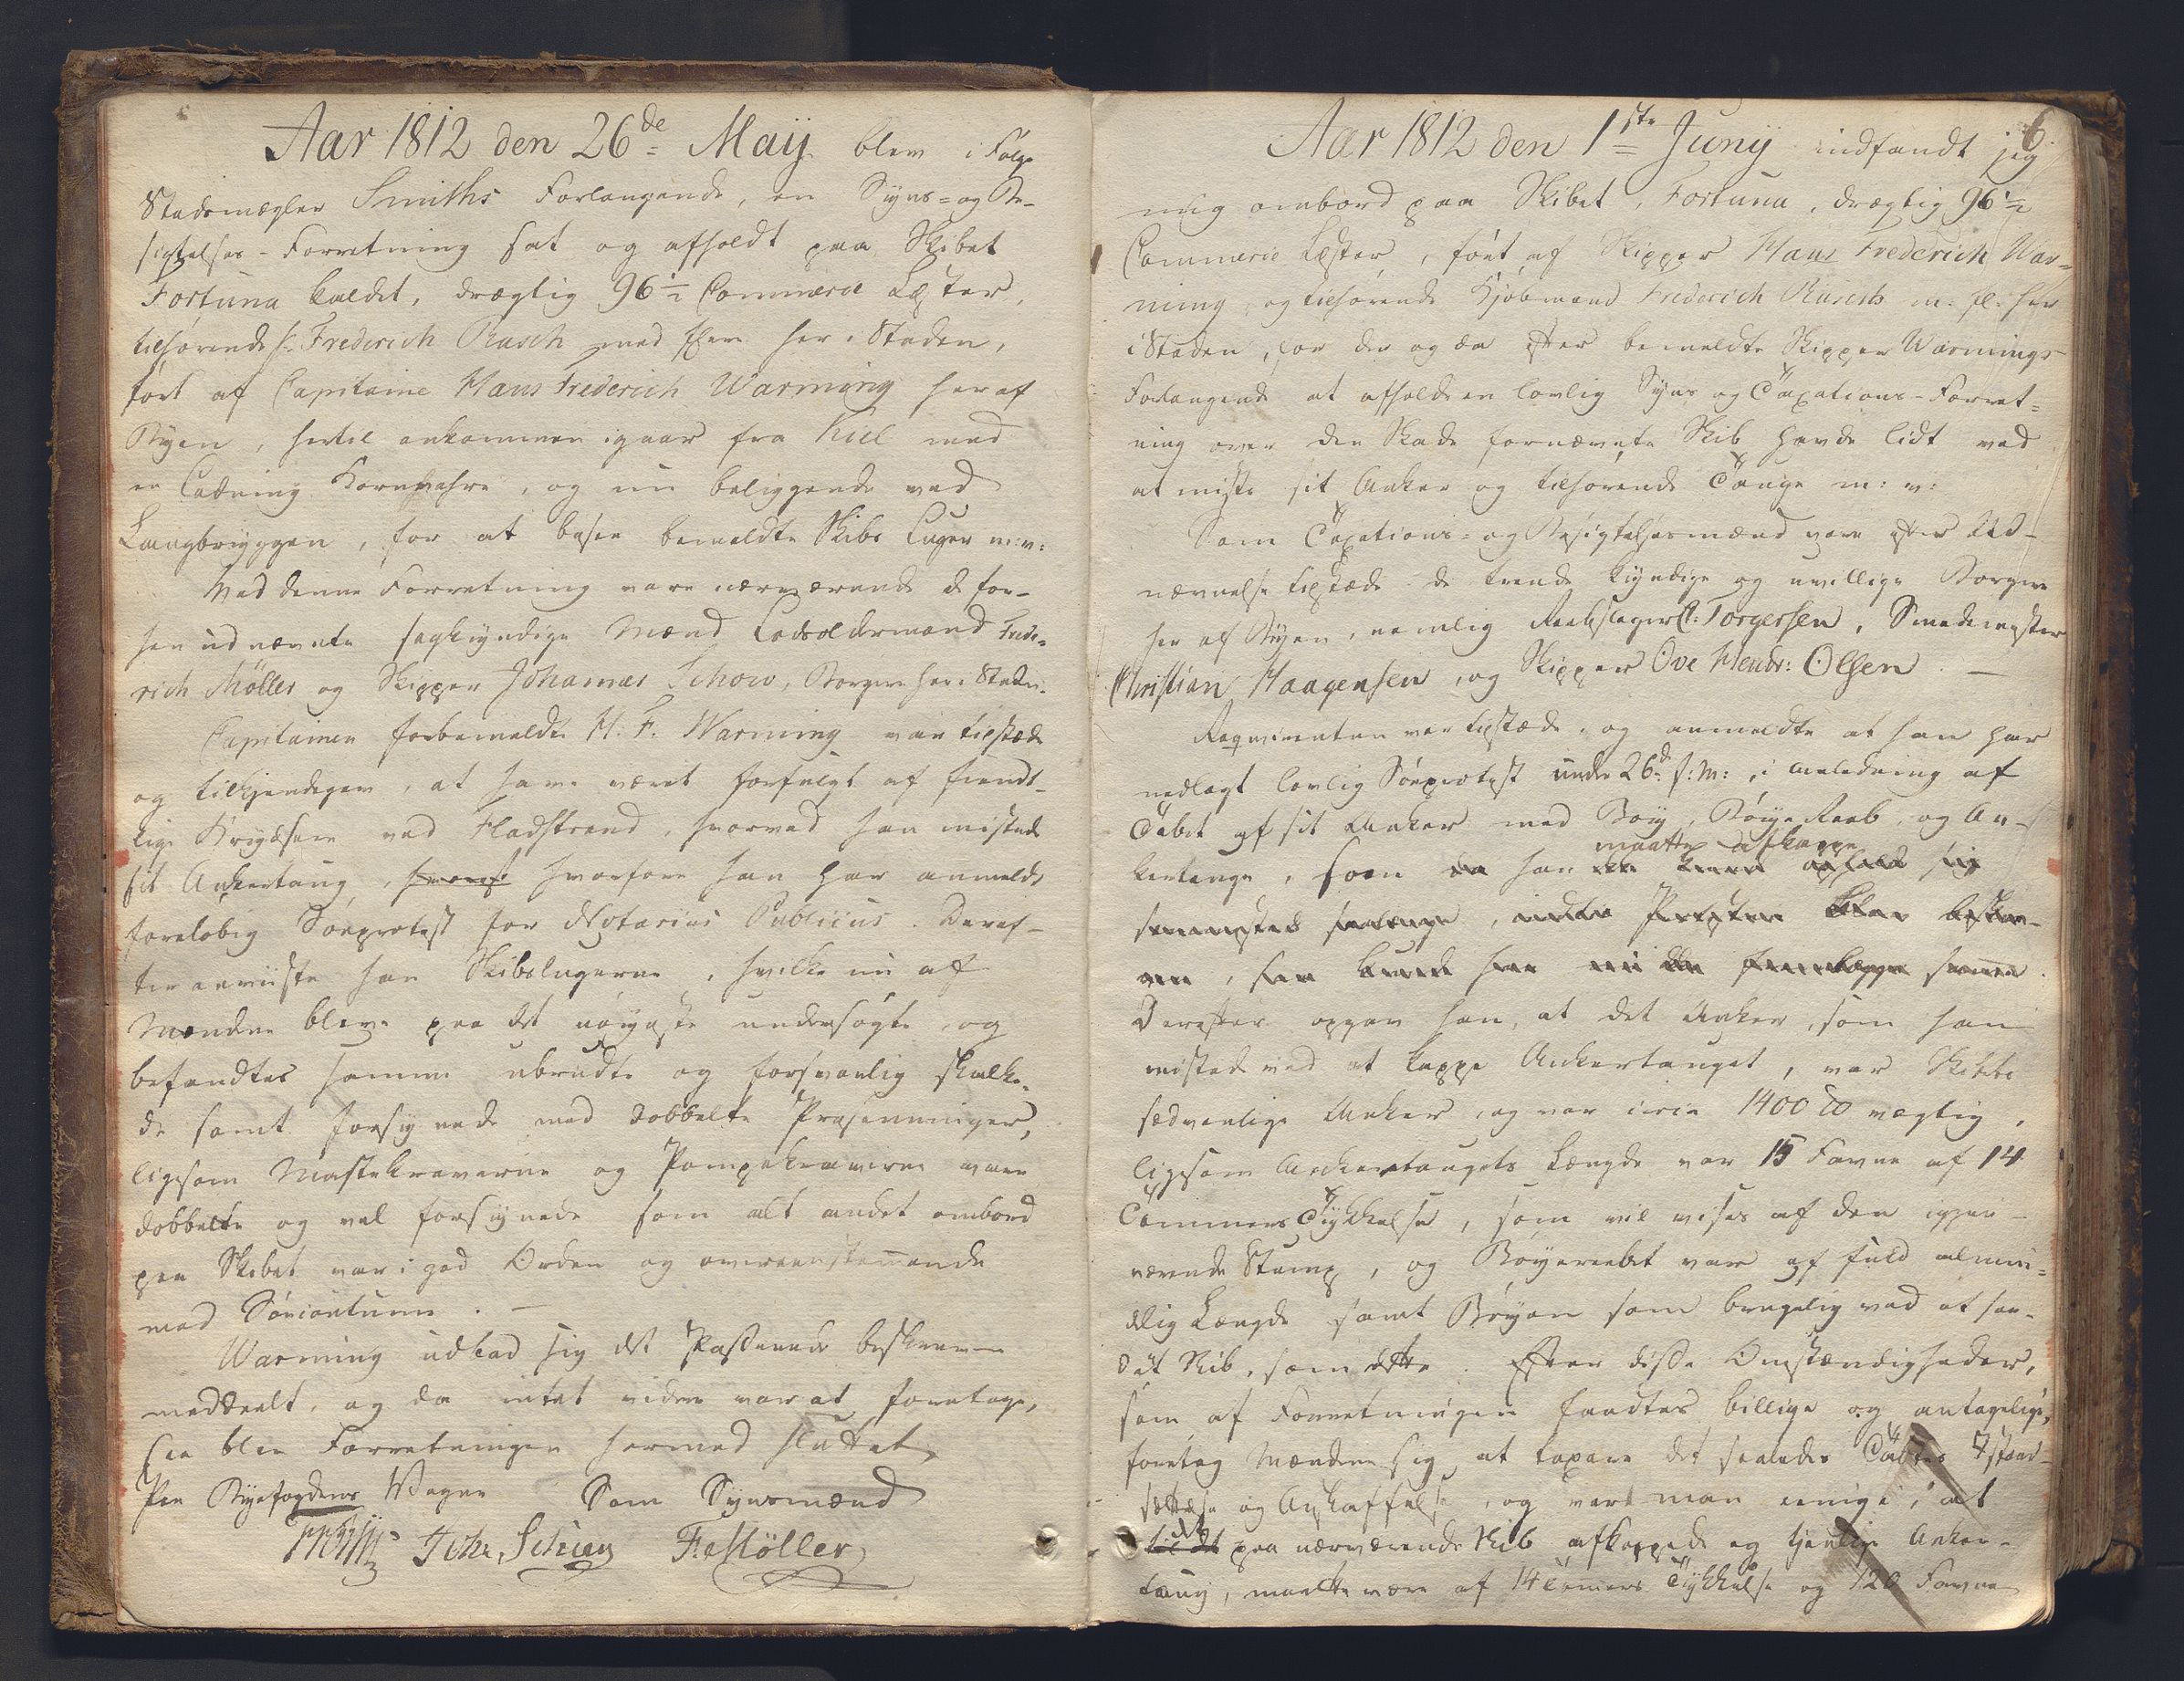 Aar 1812 den 26de Maij blev i Følge
Stadsmægler Smiths Forlangende, en Syns- og Be-
sigtelses-Forretning sat og afholdt paa Skibet
Fortuna kaldet, drægtig 96 1/2 Commerce Læster,
tilhørende Hr. Frederich Rasch med flere her i Staden,
ført af Capitaine Hans Frederich Warming her af
Byen, hertil ankommen igaar fra Kiel med
en Ladning Kornvahre, og nu beliggende ved
Langbryggen, for at besee bemeldte Skibs Luger m: v:
Ved denne Forretning vare nærværende de for-
hen udnævnte sagkyndige Mænd Lodsoldermand Frede-
rich Möller og Skipper Johannes Schow, Borgere her i Staden.
Capitainen forbemeldte H. F. Warming var tilstæde
og tilkjendegav, at have været forfulgt af fiendt-
lige Krydsere ved Fladstrand, hvorved han mistede
sit Ankertoug, hvorfor hvorfore han har anmeldt
foreløbig Søeprotest for Notarius Publicus. Deref-
ter anviiste han Skibslugerne, hvilke nu af
Mændene bleve paa det nøyeste undersøgte, og
befandtes samme ubrudte og forsvarlig skalke-
de samt forsynede med dobbelte Præsenninger,
ligesom Mastekraverne og Pompekraverne vare
dobbelte og vel forsynede som alt andet ombord
paa Skibet var i god Orden og overeenstemmende
med Søecoutume. —
Warming udbad sig det Passerede beskreven
meddeelt, og da intet videre var at foretage,
saa blev Forretningen hermed sluttet
Paa Byefogdens Vegne Som Synsmænd
Joh: Schow F. Möller
6.
Aar 1812 den 1ste Junij indfandt jeg
mig ombord paa Skibet, Fortuna, drægtig 96 1/2
Commerce Læster, ført af Skipper Hans Frederich War-
ming, og tilhørende Kjøbmand Frederich Rasch m: fl: her
i Staden, for der og da efter bemeldte Skipper Warmings
Forlangende at afholde en lovlig Syns og Taxations-Forret-
ning over den Skade fornævnte Skib havde lidt ved
at miste sit Anker og tilhørende Touge m: v:
Som Taxations- og Besigtelsesmænd vare efter Ud-
nævnelse tilstæde de trende kyndige og uvillige Borgere
her af Byen, nemlig Reebslager C: Torgersen, Smedemester
Christian Haagensen, og Skipper Ove Hendr: Olsen. —
Requirenten var tilstæde, og anmeldte at han har
nedlagt lovlig Søeprotest under 26d f: M:, i Anledning af
Tabet af sit Anker med Bøy, Bøye Reeb, og An-
maatte afkappe
kertouge, som da han sig
han
Derefter opgav han, at det Anker, som han
mistede ved at kappe Ankertouget, var Skibets
sædvanlige Anker, og var circa 1400 ℔ vægtig,
ligesom Ankertougets Længde var 15 Favne af 14
Tommers Tykkelse, som vil vises af den igjen-
værende Stump, og Bøyereebet var af fuld almin-
delig Længde samt Bøyen som brugelig ved et saa-
dat Skib, som dette. Efter disse Omstændigheder,
som af Forretningen fandtes billige og antagelige,
foretog Mændene sig at taxere det saaledes Tabtes Istand-
sættelse og Anskaffelse, og vare man eenige i, at
det paa nærværende Skib afkappede og tjenlige Anker-
toug, maatte være af 14 Tomers Tykkelse og 120 Favne